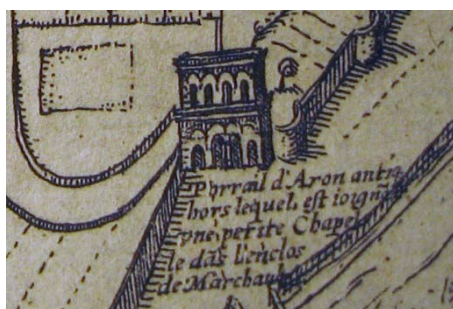 Phrrail d'Aron antra
hors lequel est ioignāt
vne petite Chapel
le dās l'enclos
de Marchaut